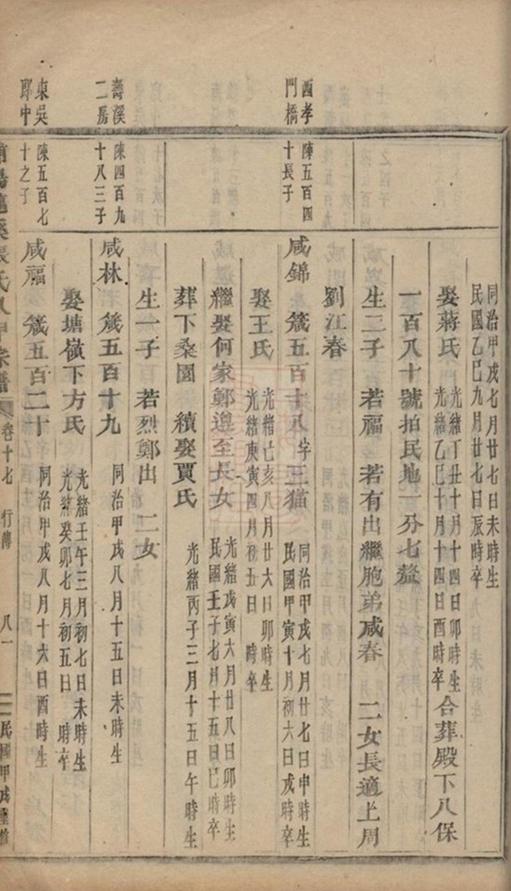 同治甲戌七月廿七日未時生
民國乙巳九月廿七日辰時卒
娶蔣氏 光緒丁丑十月十四日卯時生 合葬殿下八保
光緒乙巳十月十四日酉時卒
一百八十號拍民地一分七釐
生二子 若福 若有出繼胞弟咸春 二女長適上周
劉江春
西孝門橋
陳五百四十長子
咸錦 箴五百十八字三猫 同治甲戌七月廿七日申時生
民國甲寅十月初六日戌時卒
娶王氏 光緒亡亥八月廿六日卯時生
光緒庚寅四月初五日 時卒
繼娶何家鄭遵至長女 光緒戊寅六月廿八日卯時生
民國壬子七月十五日巳時卒
葬下桑園 續娶賈氏 光緒丙子三月十五日午時生
生一子 若烈鄭出 二女
壽溪二房
陳四百九十八三子
咸林 箴五百十九 同治甲戌八月十五日未時生
娶塘嶺下方氏 光緒壬午三月初七日未時生
光緒癸卯七月初五日 時卒
東吳郎中
陳五百七十之子
咸福 箴五百二十 同治甲戌八月十六日酉時生
張氏八甲宗譜 卷十七 行傳 八一 民國甲戌重修